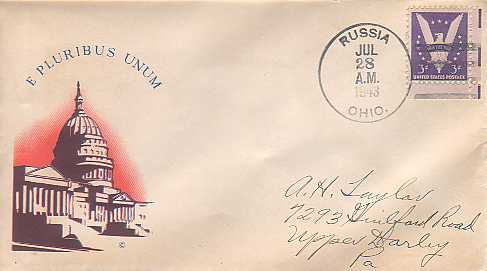 E PLURIBUS UNUM
RUSSIA
JUL
28
A.M.
1943
OHIO.
WIN THE WAR
3¢ 3¢
UNITED STATES POSTAGE
©
A. H. Taylor
7293 Guilford Road
Upper Darby
Pa